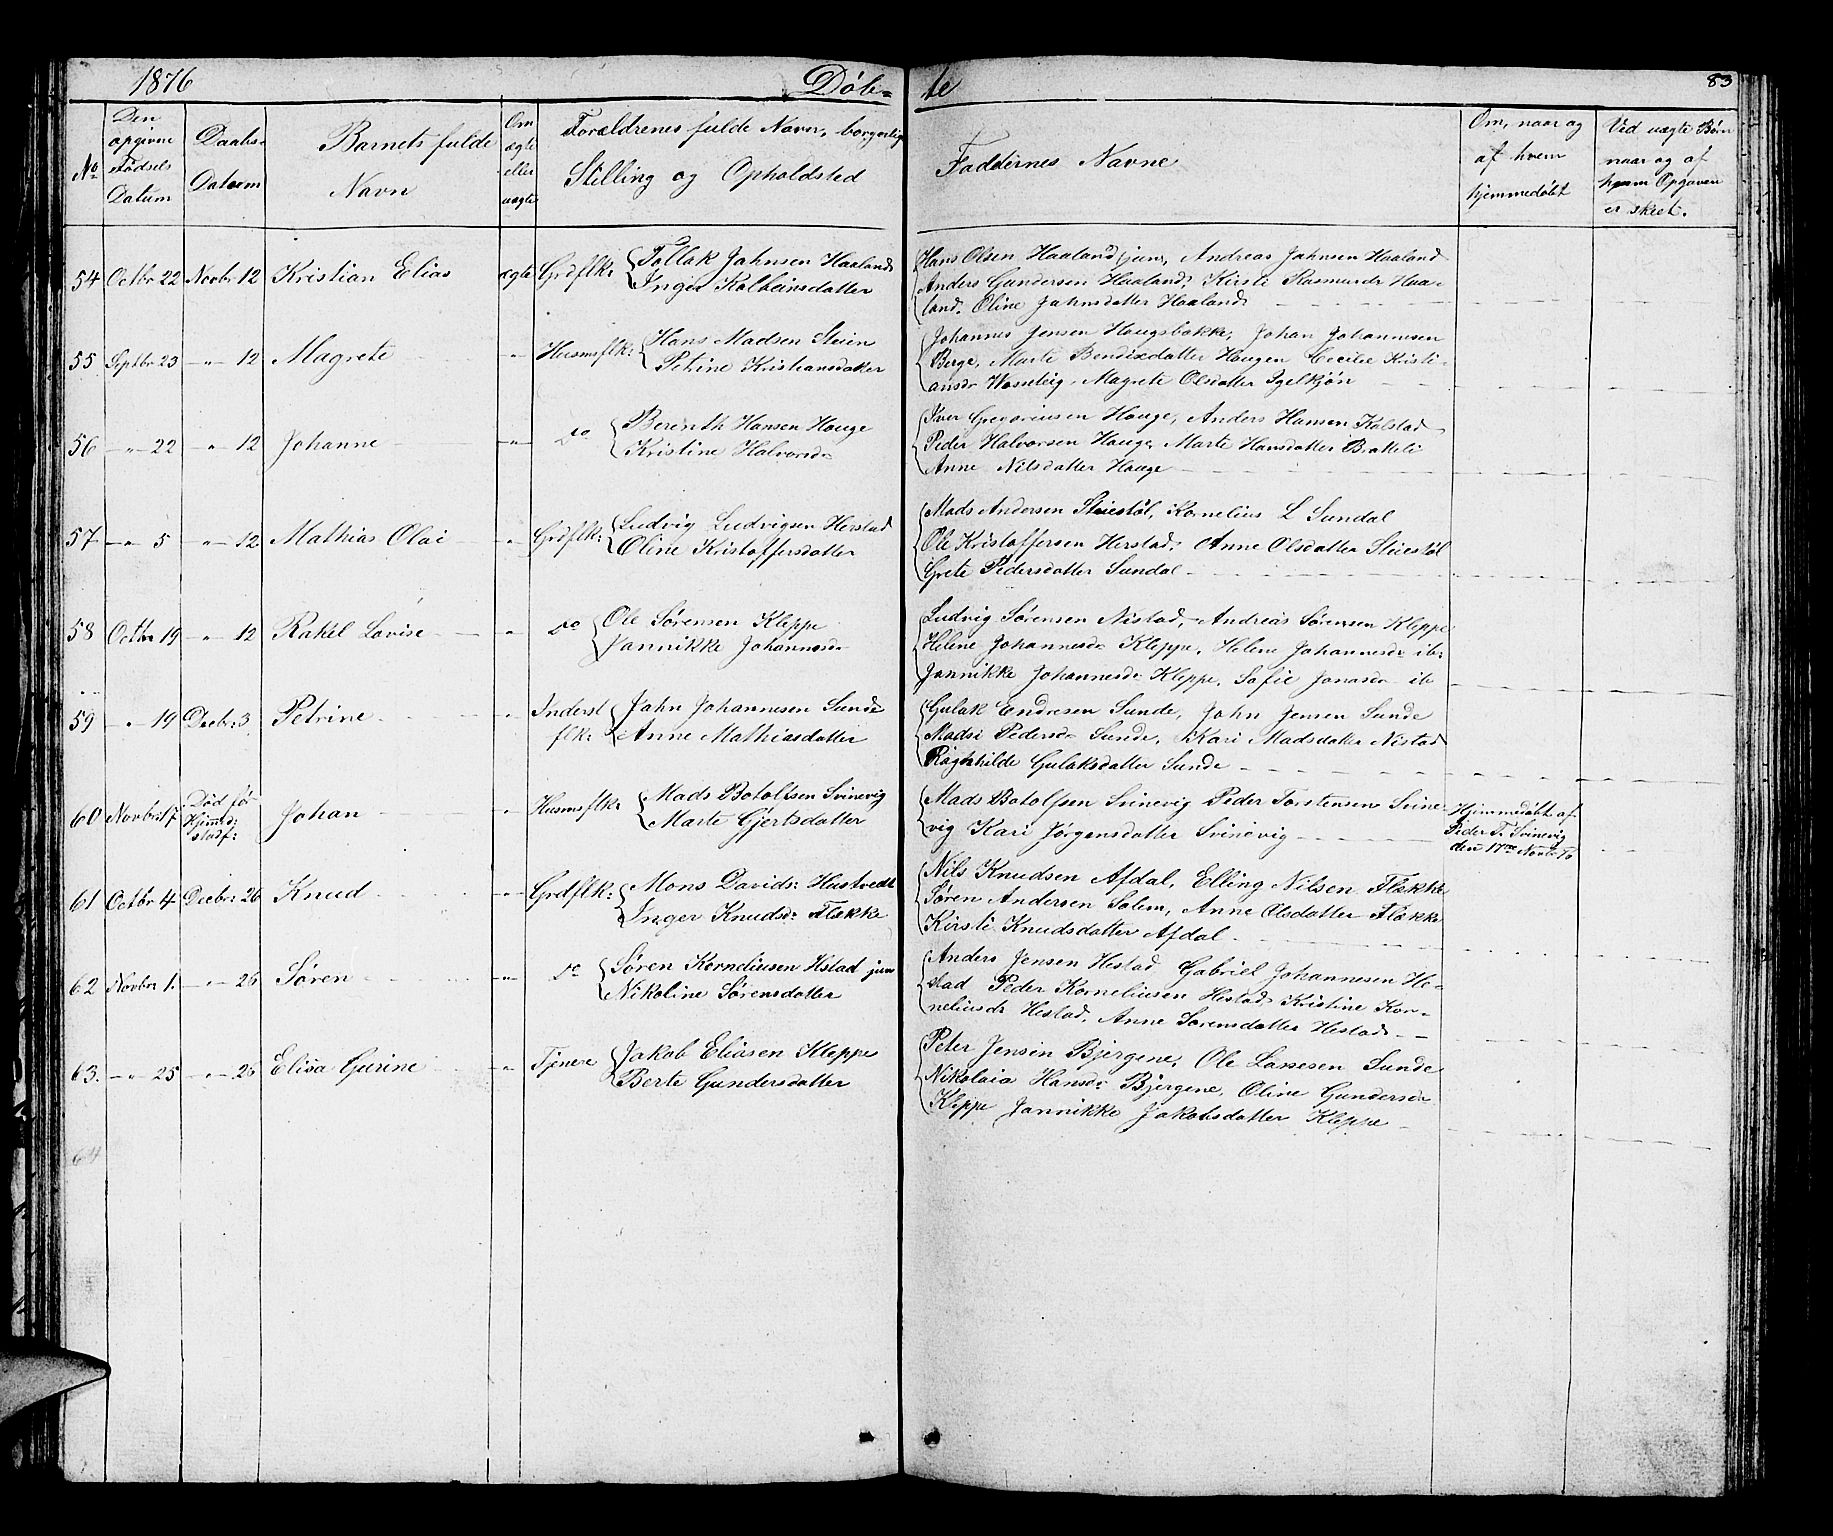 1876 Døb= te 83
No
Den opgivne Fødsels Datum
Daabs- Datum
Barnets fulde Navn
Om ægte eller uægte
Forældrenes fulde Navn, borgerlig Stilling og Opholdsted
Faddernes Navne
Om, naar og af hvem hjemmedøbt
Ved uægte Børn naar og af hvem Opgaven er skeet.
54 Octbr 22 Novbr 12 Kristian Elias ægte Grdflk: Tollak Johnsen Haaland
Inger Kolbeinsdatter
Hans Olsen Haaland jun, Andreas Johnsen Haaland
Anders Gundersen Haaland, Kirsti Rasmusdr Haa-
land. Oline Johnsdatter Haaland
55 Septbr 23 -"- 12 Magrete " Husmsflk: Hans Madsen Steien
Petrine Kristiansdatter
Johannes Jensen Haugsbakke, Johan Johannesen
Berge, Marte Bendixdatter Haugen Cecilie Kristi-
ansdr Magrete Olsdatter Igelkjøn
56 -"- 22 -"- 12 Johanne -"- do Berenth Hansen Hauge
Kristine Halvorsdr
Iver Gregoriusen Hauge, Anders Hansen Kalstad
Peder Halvorsen Hauge, Marte Hansdatter Bratteli
Anne Nilsdatter Hauge
57 -"- 5 -"- 12 Mathias Olai " Grdflk: Ludvig Ludvigsen Herstad
Oline Kristoffersdatter
Mads Andersen Stiestøl, Kornelius L Sundal
Ole Kristoffersen Herstad. Anne Olsdatter Stiestøl
Grete Pedersdatter Sundal
58 Octbr 19 -"- 12 Rakel Lovise " do Ole Sørensen Kleppe
Jannikke Johannesdr
Ludvig Sørensen Nistad, Andreas Sørensen Kleppe
Helene Johannesdr Kleppe, Helene Johannesdr ib:
Jannikke Johannesdr Kleppe, Sofie Jonasdr ib
59 " 19 Decbr 3 Petrine " Inderst
flk: John Johannesen Sunde
Anne Mathiasdatter
Gulak Endresen Sunde, John Jensen Sunde
Madsi Pedersdr Sunde, Kari Madsdatter Nistad
Raghnilde Gulaksdatter Sunde
60 Novbr 17 Død før
Hjemd:
stadf: Johan " Husmsflk: Mads Botolfsen Svinevig
Marte Gjertsdatter
Mads Botolfsen Svinevig Peder Torstensen Svine-
vig Kari Jørgensdatter Svinevig
Hjemmedøbt af
Peder T. Svinevig
den 17de Novbr
61 Octbr 4 Decbr 26 Knud -"- Grdflk: Mons Davids: Hustvedt
Inger Knudsdr Flekke
Nils Knudsen Afdal, Elling Nilsen Flekke
Søren Andersen Salem, Anne Olsdatter Flekke
Kirsti Knudsdatter Afdal
62 Novbr 1. -"- 26 Søren -"- do Søren Korneliusen Hstad jun
Nikoline Sørensdatter
Anders Jensen Hestad Gabriel Johannesen He-
stad Peder Korneliusen Hestad Kristine Kor-
neliusdr Hestad, Anne Sørensdatter Hestad
63. -"- 25 -"- 26 Elisa Gurine " Tjenere Jakob Eliasen Kleppe
Berte Gundersdatter
Peter Jensen Bjergene, Ole Lassesen Sunde
Nikolaia Hansdr Bjergene, Oline Gundersdr
Kleppe Jannikke Jakobsdatter Kleppe
64